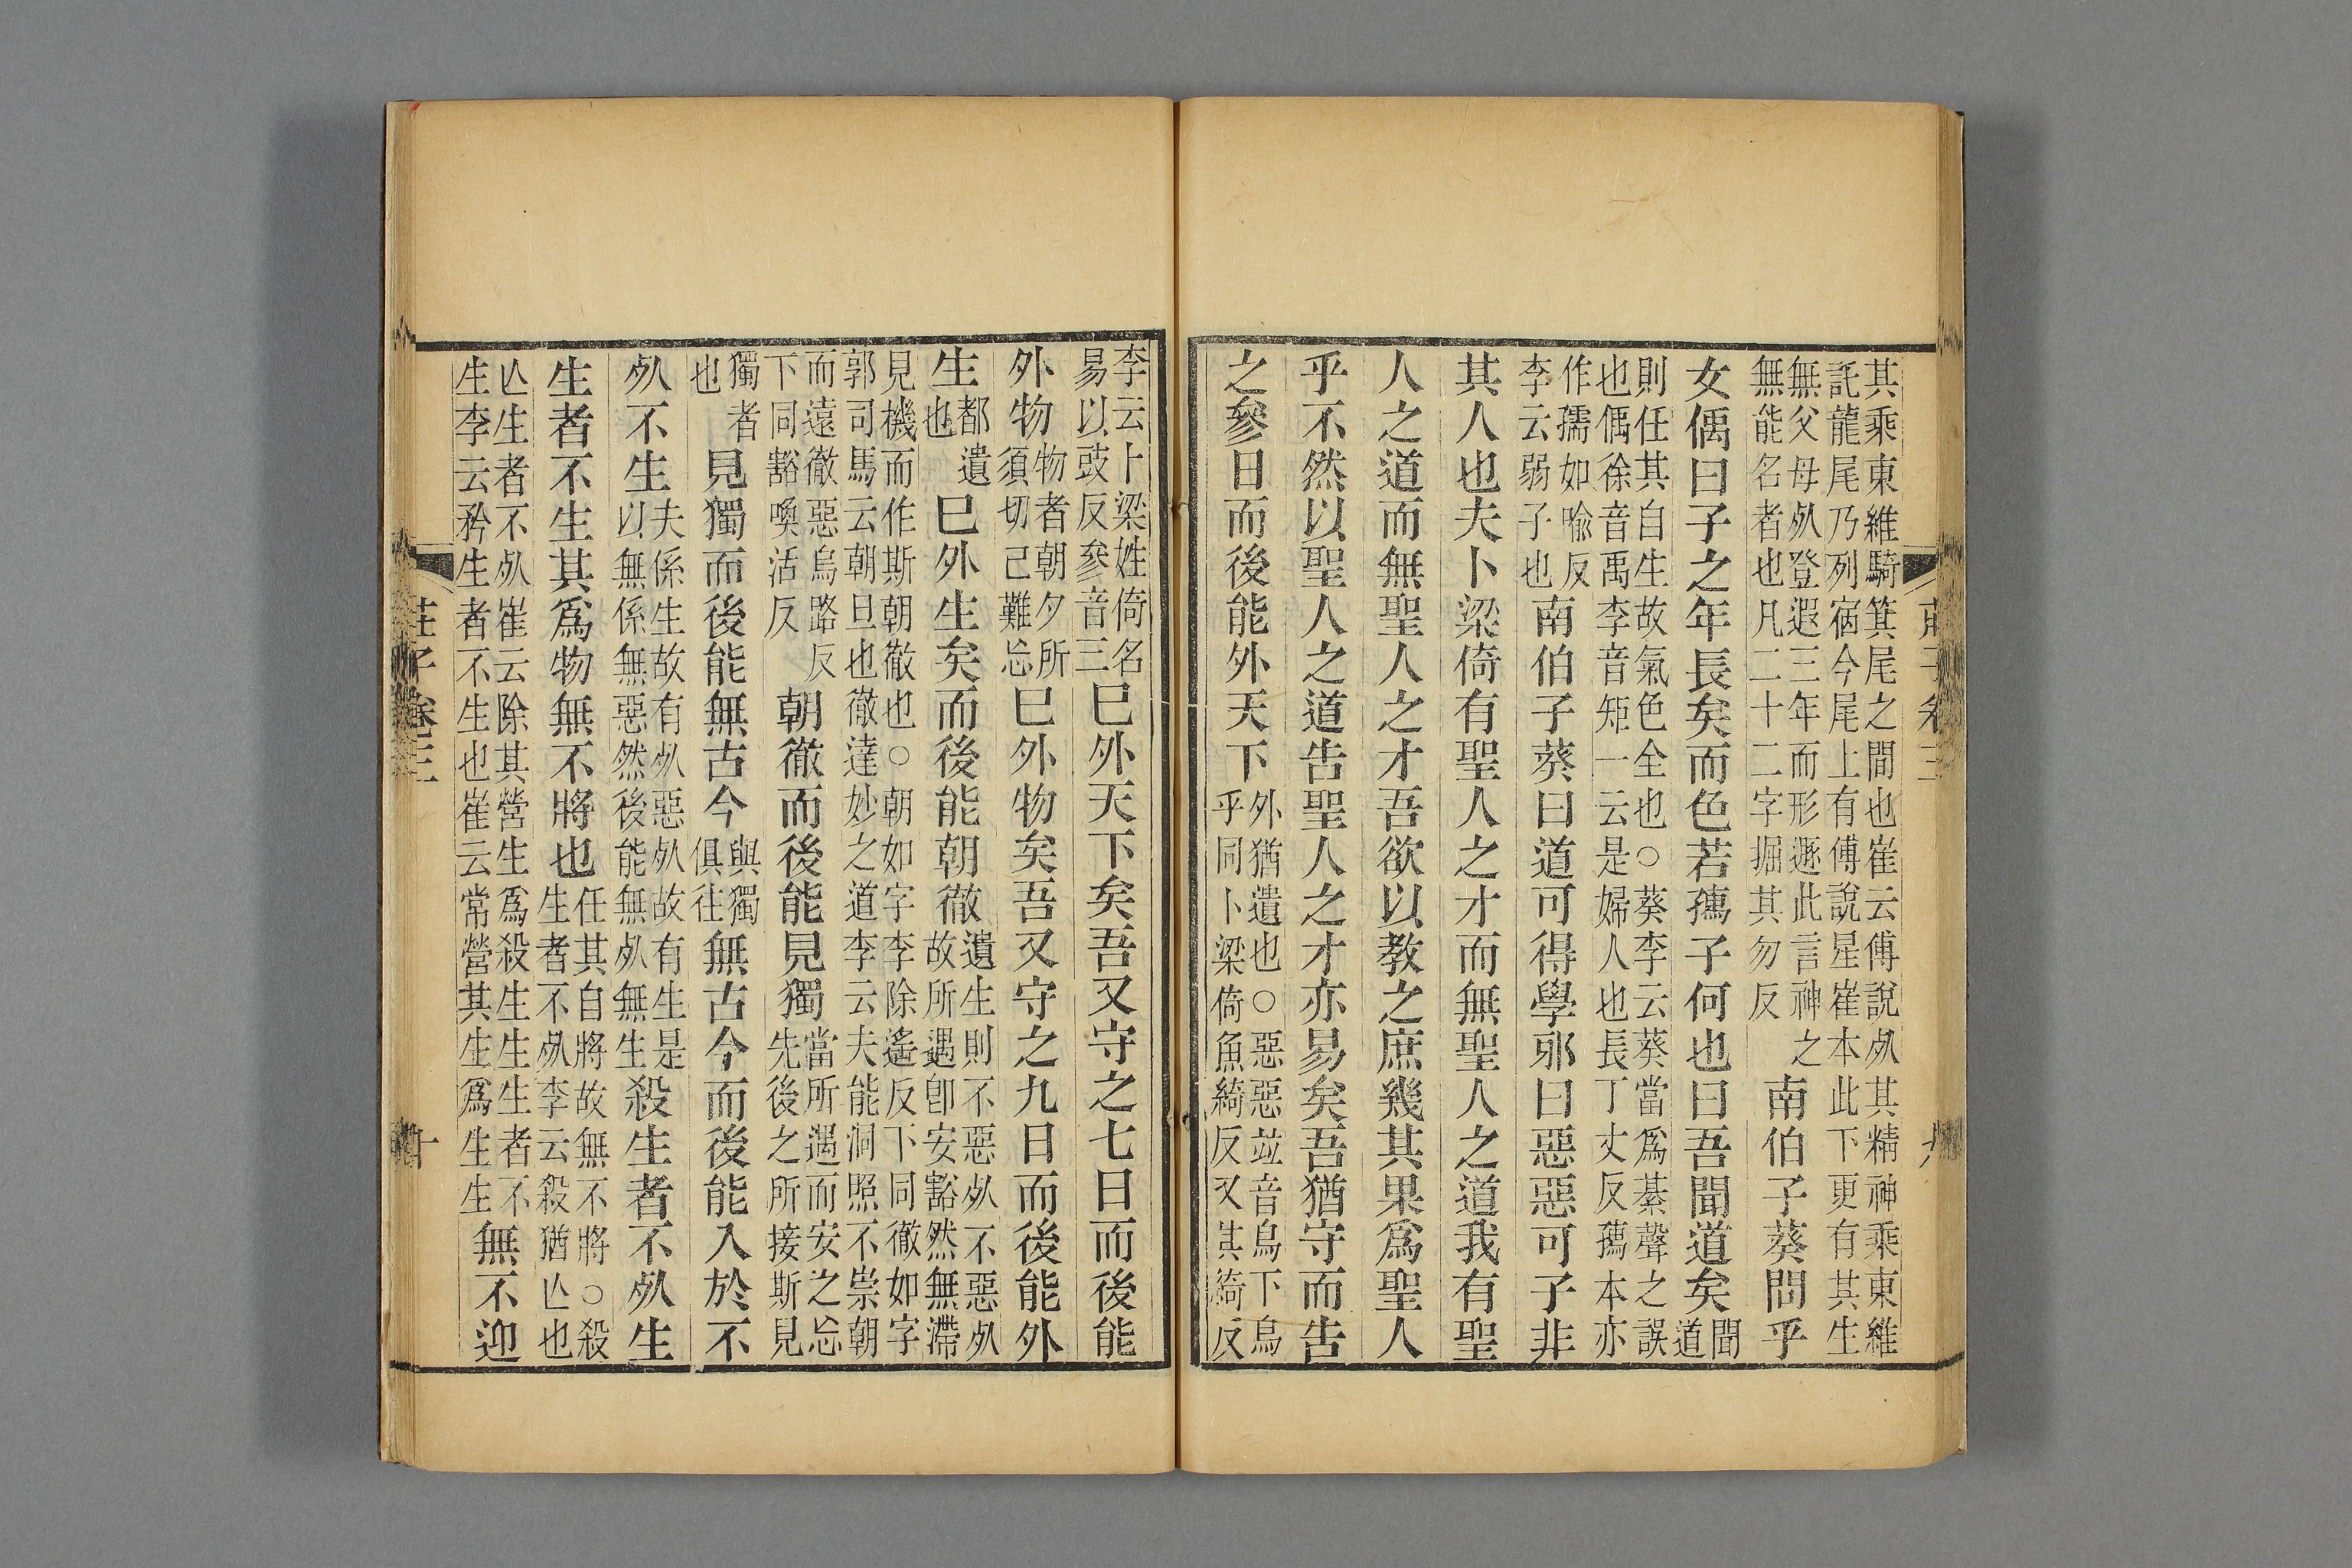 其乘東維騎箕尾之間也崔云傅說㱙其精神乘東維
託龍尾乃列宿今尾上有傅說星崔本此下更有其生
無父母㱙登遐三年而形遯此言神之
無能名者也凡二十二字掘其勿反
南伯子葵問乎
女偊曰子之年長矣而色若孺子何也曰吾聞道矣
聞
道
則任其自生故氣色全也○葵李云葵當爲綦聲之誤
也偊徐音禹李音矩一云是婦人也長丁丈反孺本亦
作孺如喻反
李云弱子也
南伯子葵曰道可得學邪曰惡惡可子非
其人也夫卜梁倚有聖人之才而無聖人之道我有聖
人之道而無聖人之才吾欲以教之庶幾其果爲聖人
乎不然以聖人之道告聖人之才亦易矣吾猶守而告
之參日而後能外天下
外猶遺也○惡惡竝音烏下烏
乎同卜梁倚魚綺反又其綺反
李云卜梁姓倚名
易以豉反參音三
巳外天下矣吾又守之七日而後能
外物
物者朝夕所
須切己難忘
巳外物矣吾又守之九日而後能外
生
都遺
也
巳外生矣而後能朝徹
遺生則不惡㱙不惡㱙
故所遇卽安豁然無滯
見機而作斯朝徹也○朝如字李除遙反下同徹如字
郭司馬云朝旦也徹達妙之道李云夫能洞照不崇朝
而遠徹惡烏路反
下同豁喚活反
朝徹而後能見獨
當所遇而安之忘
先後之所接斯見
獨者
也
見獨而後能無古今
與獨
俱往
無古今而後能入於不
㱙不生
夫係生故有㱙惡㱙故有生是
以無係無惡然後能無㱙無生
殺生者不㱙生
生者不生其爲物無不將也
任其自將故無不將○殺
生者不㱙李云殺猶亾也
亾生者不㱙崔云除其營生爲殺生生生者不
生李云矜生者不生也崔云常營其生爲生生
無不迎
莊子卷三
十